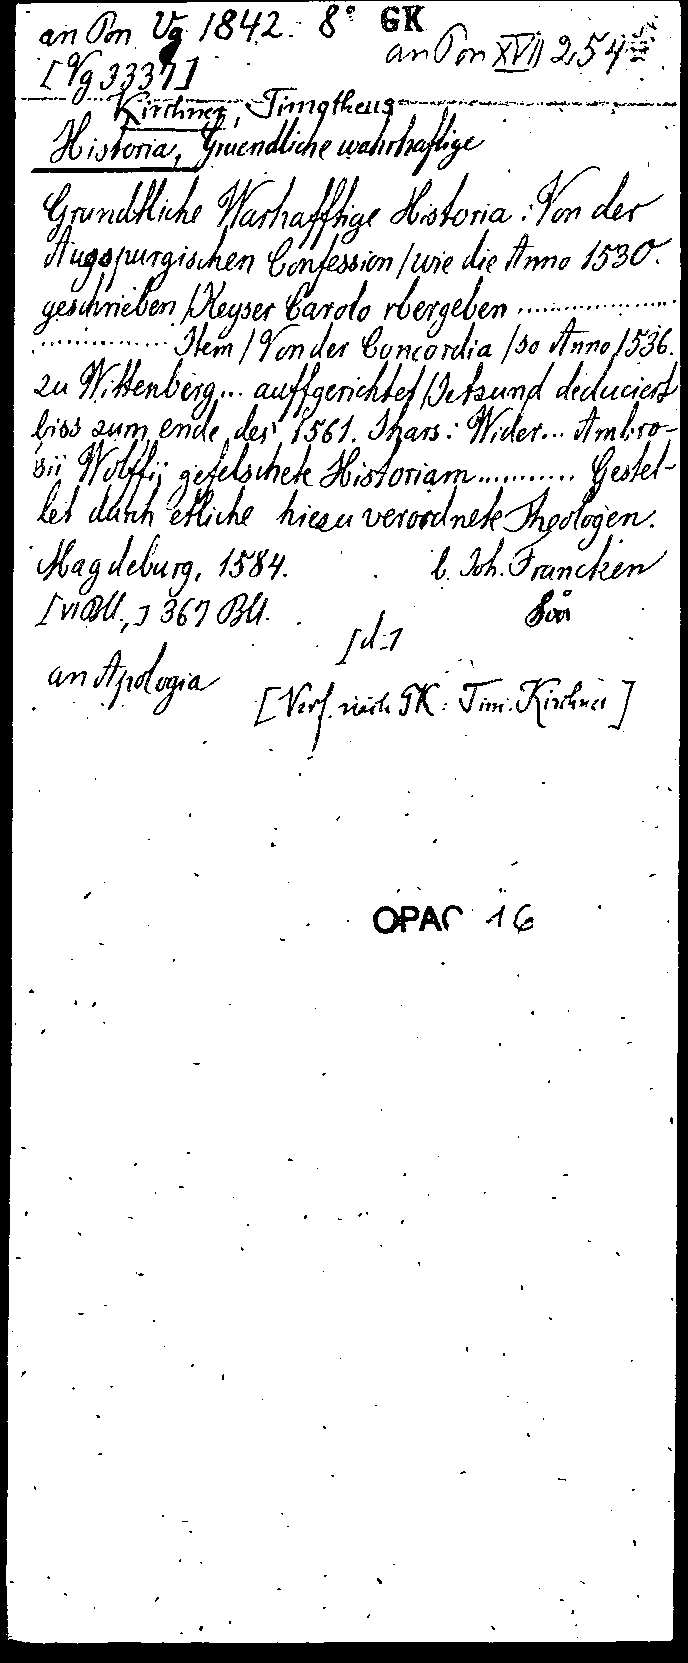 an Pon Vg 1842. 8° GK
an Pon XVII 254
[Vg 3337]
Kirchner, Timotheus
Historia, Gruendliche wahrhaftige
Grundtliche Warhafftige Historia: Von der
Augspurgischen Confession / wie die Anno 1530.
geschrieben / Keyser Carolo vbergeben ..................
............... Item / Von der Concordia / so Anno 1536.
zu Wittenberg... auffgerichtet / Jetzund deduciert
biss zum ende des 1561. Jhars: Wider... Ambro-
sii Wolffij gefelschete Historiam ........... Gestel-
let durch etliche hiezu verordnete Theologen.
Magdeburg, 1584. b. Joh. Francken
[VI Bll.,] 367 Bll.
[d.]
an Apologia
[Verf. nach GK: Tim. Kirchner]
OPAC 16